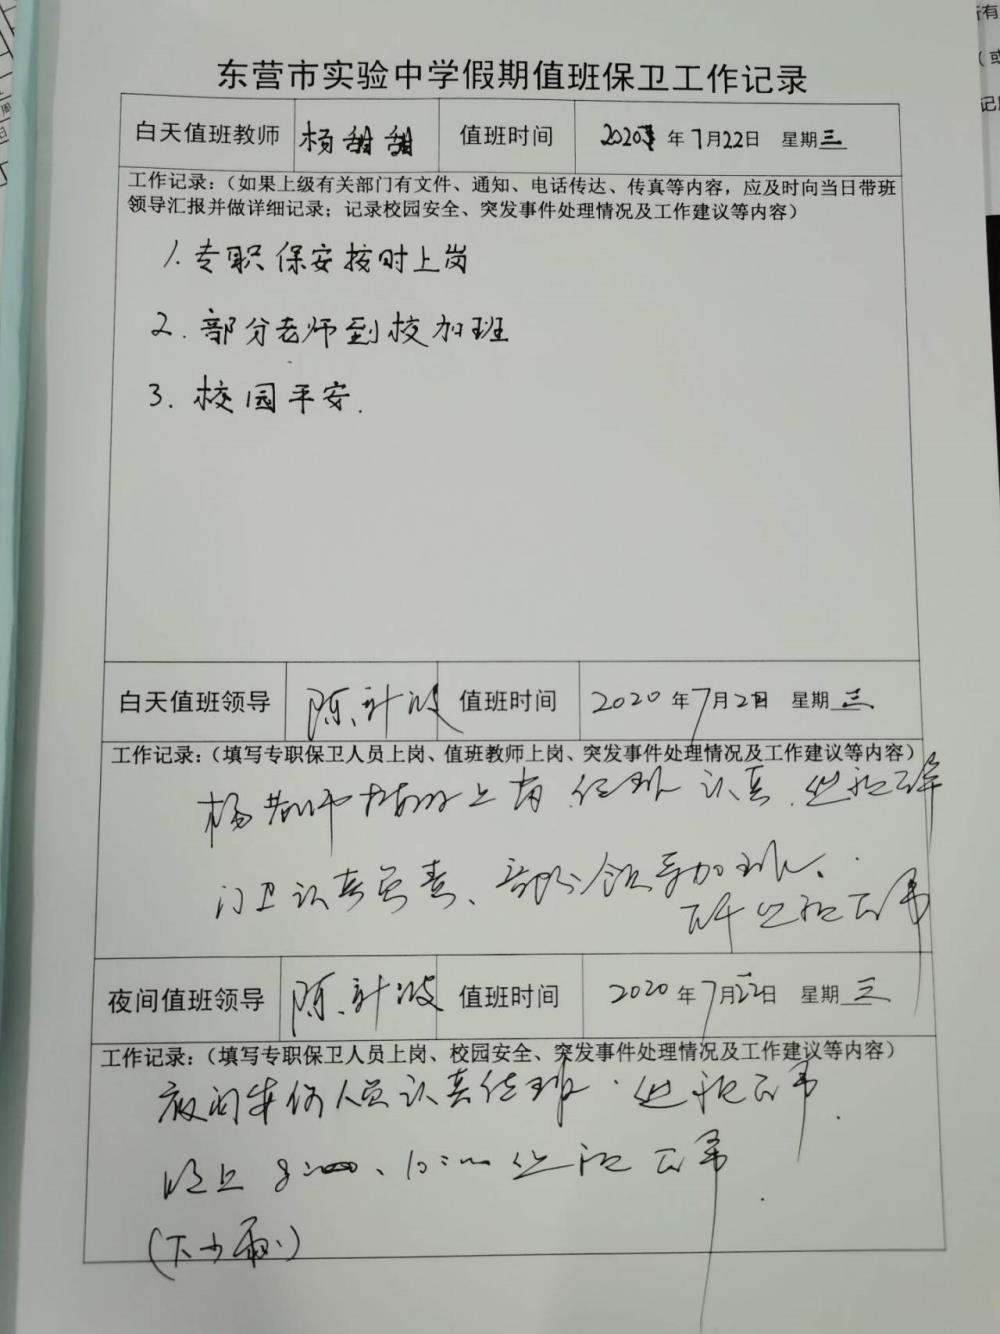 东营市实验中学假期值班保卫工作记录
白天值班教师 杨甜甜 值班时间 2020年7月22日 星期三
工作记录:(如果上级有关部门有文件、通知、电话传达、传真等内容,应及时向当日带班
领导汇报并做详细记录;记录校园安全、突发事件处理情况及工作建议等内容)
1.专职保安按时上岗
2.部分老师到校加班
3.校园平安.
白天值班领导 陈 值班时间 2020年7月22日 星期三
工作记录:(填写专职保卫人员上岗、值班教师上岗、突发事件处理情况及工作建议等内容)
杨老师按时上岗 值班认真
门卫认真负责、部分领导加班、
夜间值班领导 陈 值班时间 2020年7月22日 星期三
工作记录:(填写专职保卫人员上岗、校园安全、突发事件处理情况及工作建议等内容)
夜间 人员认真值班
晚上 8:00、10:00
(下小雨)